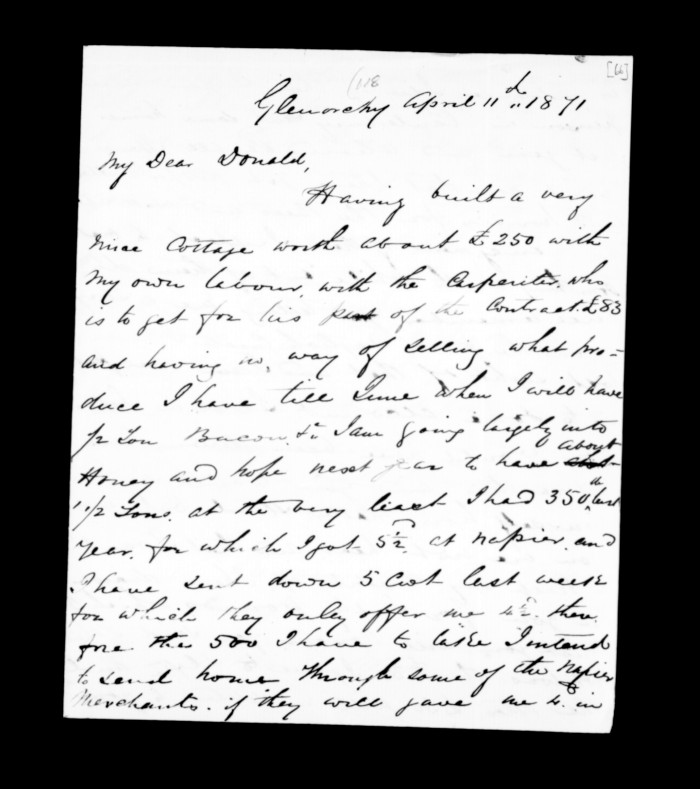 [16]
(118
Glenorchy April 11th 1871
My Dear Donald,
Having built a very
nice Cottage worth about £250 with
my own labour, with the Carpenter, who
is to get for his part of the Contract. £83
and having no, way of selling what pro=
duce I have till June when I will have
1/2 Ton Bacon, &c I am going largely into
Honey and hope next year to have about
1 1/2 Tons. at the very least I had 350 lb last
year. for which I got 5 1/2d at Napier. and
I have sent down 5 Cwt last week
for which they only offer me 4d. there
fore the 500 I have to take I intend
to send home through some of the Napier
Merchants. if they will gave me 4d. in